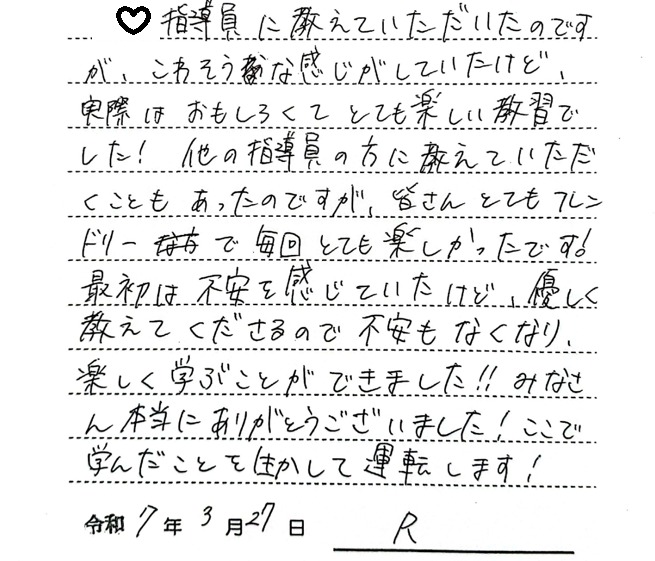 ♡指導員に教えていただいたのです
が、こわそうな感じがしていたけど、
実際はおもしろくてとても楽しい教習で
した！ 他の指導員の方に教えていただ
くこともあったのですが、皆さんとてもフレン
ドリーで毎回とても楽しかったです!
最初は不安を感じていたけど、優しく
教えてくださるので不安もなくなり、
楽しく学ぶことができました!! みなさ
ん本当にありがとうございました！ここで
学んだことを生かして運転します！
令和7年3月27日 R